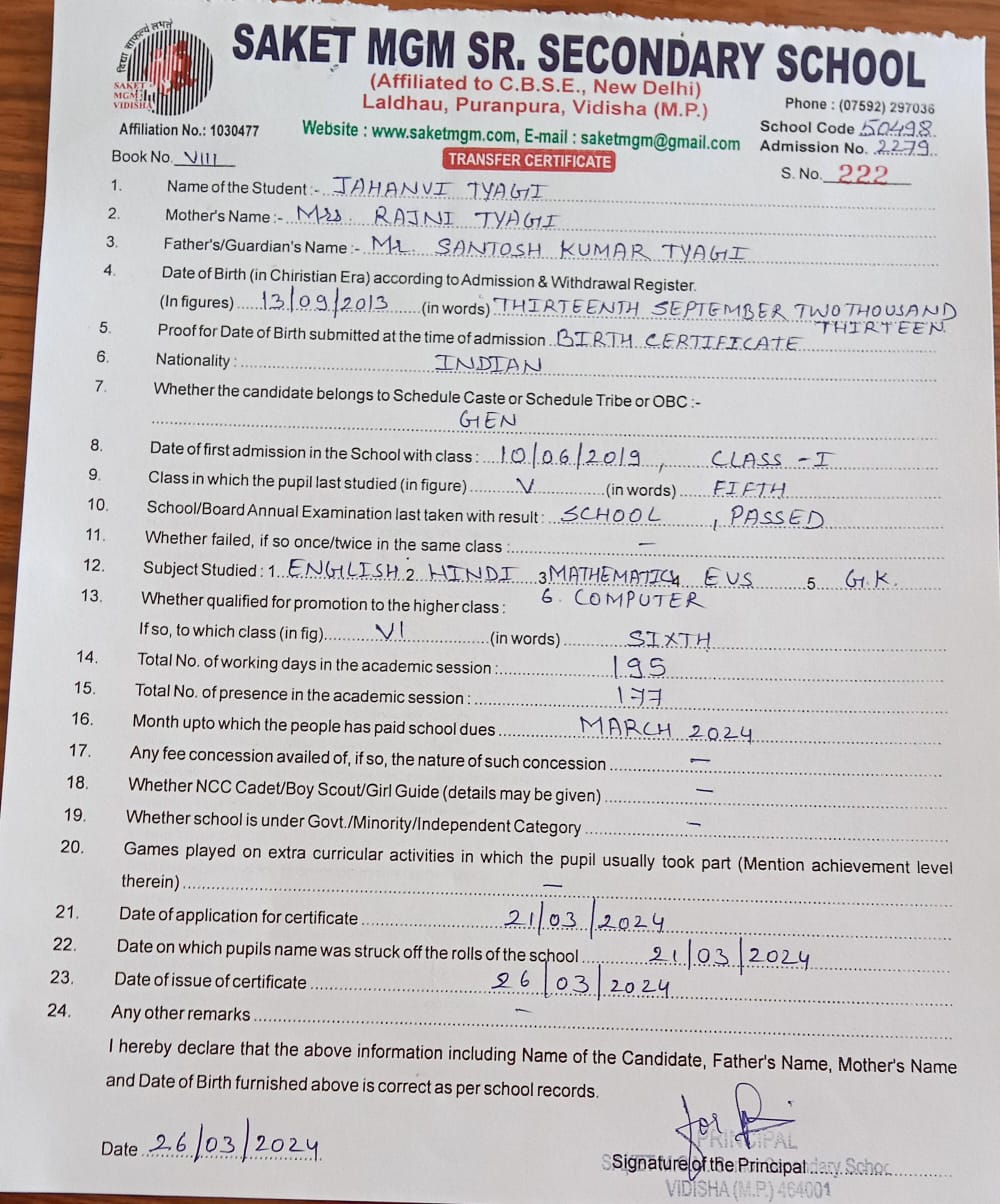 विद्या साफल्यं लभते
SAKET
MGM
VIDISHA
SAKET MGM SR. SECONDARY SCHOOL
(Affiliated to C.B.S.E., New Delhi)
Laldhau, Puranpura, Vidisha (M.P.)
Phone : (07592) 297036
Affiliation No.: 1030477
Website : www.saketmgm.com, E-mail : saketmgm@gmail.com
School Code 50498
Book No. VIII
TRANSFER CERTIFICATE
Admission No. 2279
S. No. 222
1. Name of the Student :- JAHANVI TYAGI
2. Mother's Name :- Mrs. RAJNI TYAGI
3. Father's/Guardian's Name :- Mr. SANTOSH KUMAR TYAGI
4. Date of Birth (in Chiristian Era) according to Admission & Withdrawal Register.
(In figures) 13/09/2013 (in words) THIRTEENTH SEPTEMBER TWO THOUSAND
THIRTEEN
5. Proof for Date of Birth submitted at the time of admission BIRTH CERTIFICATE
6. Nationality : INDIAN
7. Whether the candidate belongs to Schedule Caste or Schedule Tribe or OBC :-
GEN
8. Date of first admission in the School with class : 10/06/2019, CLASS - I
9. Class in which the pupil last studied (in figure) V (in words) FIFTH
10. School/Board Annual Examination last taken with result : SCHOOL, PASSED
11. Whether failed, if so once/twice in the same class : —
12. Subject Studied : 1. ENGLISH 2. HINDI 3 MATHEMATICS 4. EVS 5. G.K.
6. COMPUTER
13. Whether qualified for promotion to the higher class :
If so, to which class (in fig) VI (in words) SIXTH
14. Total No. of working days in the academic session : 195
15. Total No. of presence in the academic session : 177
16. Month upto which the people has paid school dues MARCH 2024
17. Any fee concession availed of, if so, the nature of such concession —
18. Whether NCC Cadet/Boy Scout/Girl Guide (details may be given) —
19. Whether school is under Govt./Minority/Independent Category —
20. Games played on extra curricular activities in which the pupil usually took part (Mention achievement level
therein) —
21. Date of application for certificate 21/03/2024
22. Date on which pupils name was struck off the rolls of the school 21/03/2024
23. Date of issue of certificate 26/03/2024
24. Any other remarks —
I hereby declare that the above information including Name of the Candidate, Father's Name, Mother's Name
and Date of Birth furnished above is correct as per school records.
for
PRINCIPAL
Date 26/03/2024
Signature of the Principal
VIDISHA (M.P.) 464001